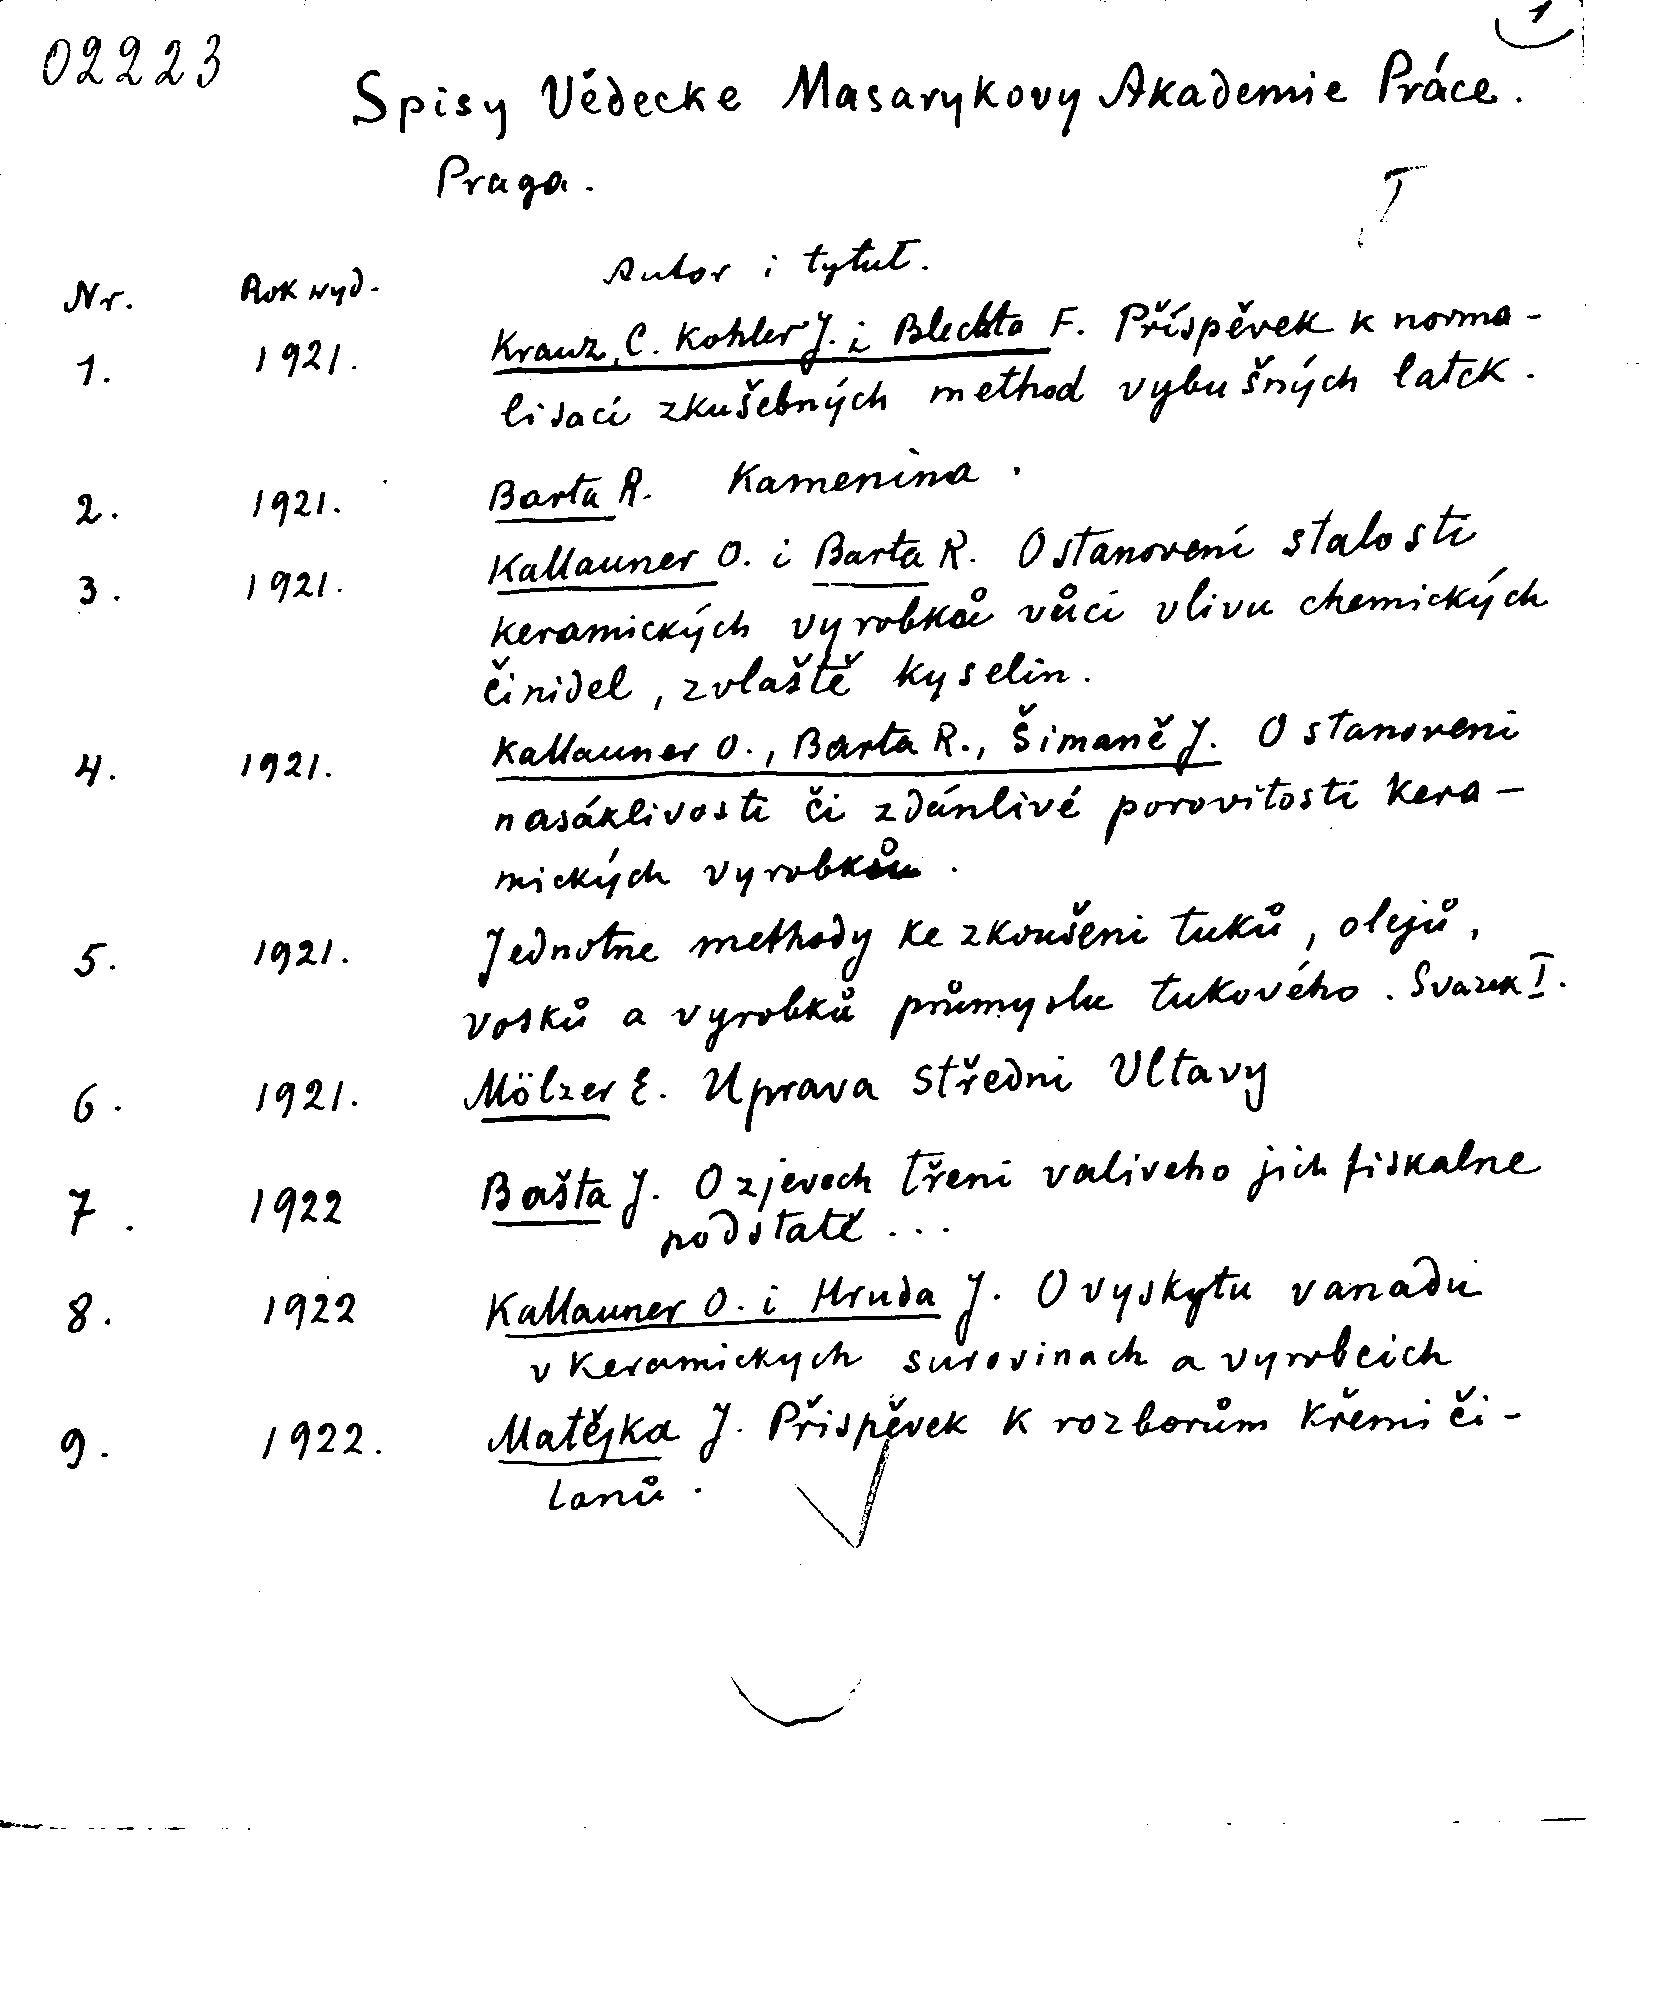 1
02223
Spisy Vědecke Masarykovy Akademie Práce.
Praga.
I
Nr. Rok wyd. Autor i tytuł.
1. 1921. Krauz, C. Kohler J. i Blechta F. Příspěvek k norma-
lisaci zkušebných method vybušných latek.
2. 1921. Barta R. Kamenina.
3. 1921. Kallauner O. i Barta R. O stanoveni stalosti
keramických vyrobků vůči vlivu chemických
činidel, zvlaště kyselin.
4. 1921. Kallauner O., Barta R., Šimaně J. O stanoveni
nasáklivosti či zdánlivé porovitosti kera-
mických vyrobků.
5. 1921. Jednotne methody ke zkoušeni tuků, olejů,
vosků a vyrobků průmyslu tukového. Svazek I.
6. 1921. Mölzer E. Uprava středni Vltavy
7. 1922 Bašta J. O zjevech třeni valiveho jich fiskalne
podstatě ...
8. 1922 Kallauner O. i Hruda J. O vyskytu vanadu
v keramickych surovinach a vyrobcich
9. 1922. Matějka J. Přispěvek k rozborům křemiči-
lanů.